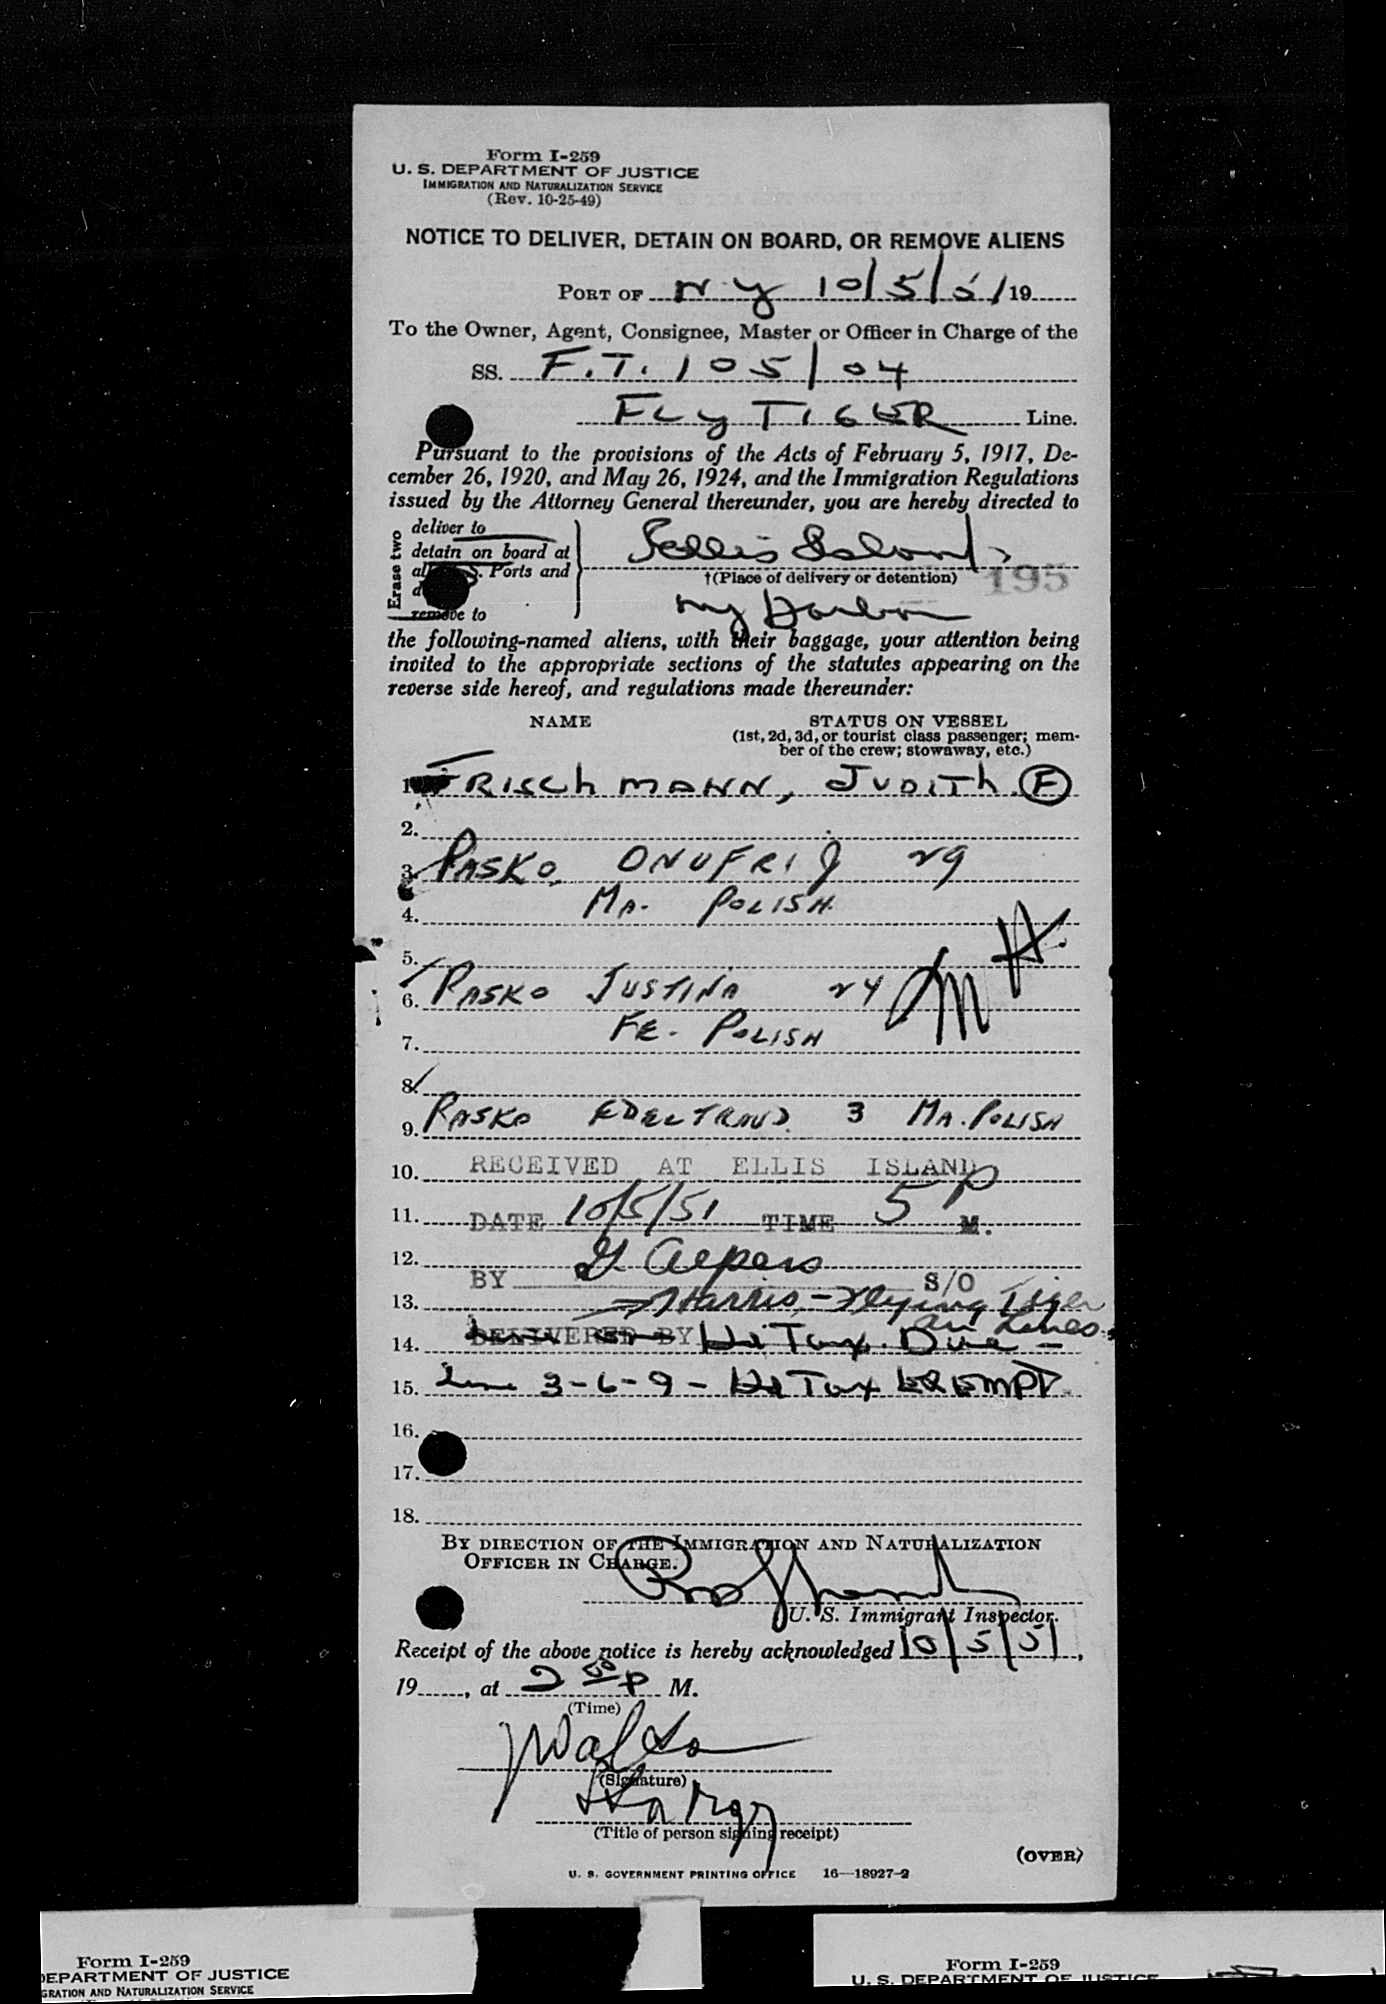 Form I-259
U. S. DEPARTMENT OF JUSTICE
IMMIGRATION AND NATURALIZATION SERVICE
(Rev. 10-25-49)
NOTICE TO DELIVER, DETAIN ON BOARD, OR REMOVE ALIENS
PORT OF N Y 10/5/51 19
To the Owner, Agent, Consignee, Master or Officer in Charge of the
SS. F.T. 105/04
FLY TIGER Line.
Pursuant to the provisions of the Acts of February 5, 1917, De-
cember 26, 1920, and May 26, 1924, and the Immigration Regulations
issued by the Attorney General thereunder, you are hereby directed to
Erase two
deliver to
detain on board at
Ports and
remove to
Ellis Island
†(Place of delivery or detention)
195
NY Harbor
the following-named aliens, with their baggage, your attention being
invited to the appropriate sections of the statutes appearing on the
reverse side hereof, and regulations made thereunder:
NAME STATUS ON VESSEL
(1st, 2d, 3d, or tourist class passenger; mem-
ber of the crew; stowaway, etc.)
1. FRISCHMANN, JUDITH F
2.
3. PASKO, ONUFRIJ 29
4. MA. POLISH
5.
6. PASKO JUSTINA 24
7. FE. POLISH
8.
9. PASKO EDELTRAUD 3 MA. POLISH
10. RECEIVED AT ELLIS ISLAND
11. DATE 10/5/51 TIME 5 P M.
12.
BY G. Alpers S/O
13. Harris, - Flying Tiger
Air Lines
14. DELIVERED BY Hd Tax Due -
15. Line 3-6-9 - Hd Tax EXEMPT
16.
17.
18.
BY DIRECTION OF THE IMMIGRATION AND NATURALIZATION
OFFICER IN CHARGE.
U. S. Immigrant Inspector.
Receipt of the above notice is hereby acknowledged 10/5/51,
19, at 2 50 P M.
(Time)
(Signature)
(Title of person signing receipt)
(OVER)
U. S. GOVERNMENT PRINTING OFFICE 16—18927-2
Form I-259
DEPARTMENT OF JUSTICE
GRATION AND NATURALIZATION SERVICE
Form I-259
U. S. DEPARTMENT OF JUSTICE